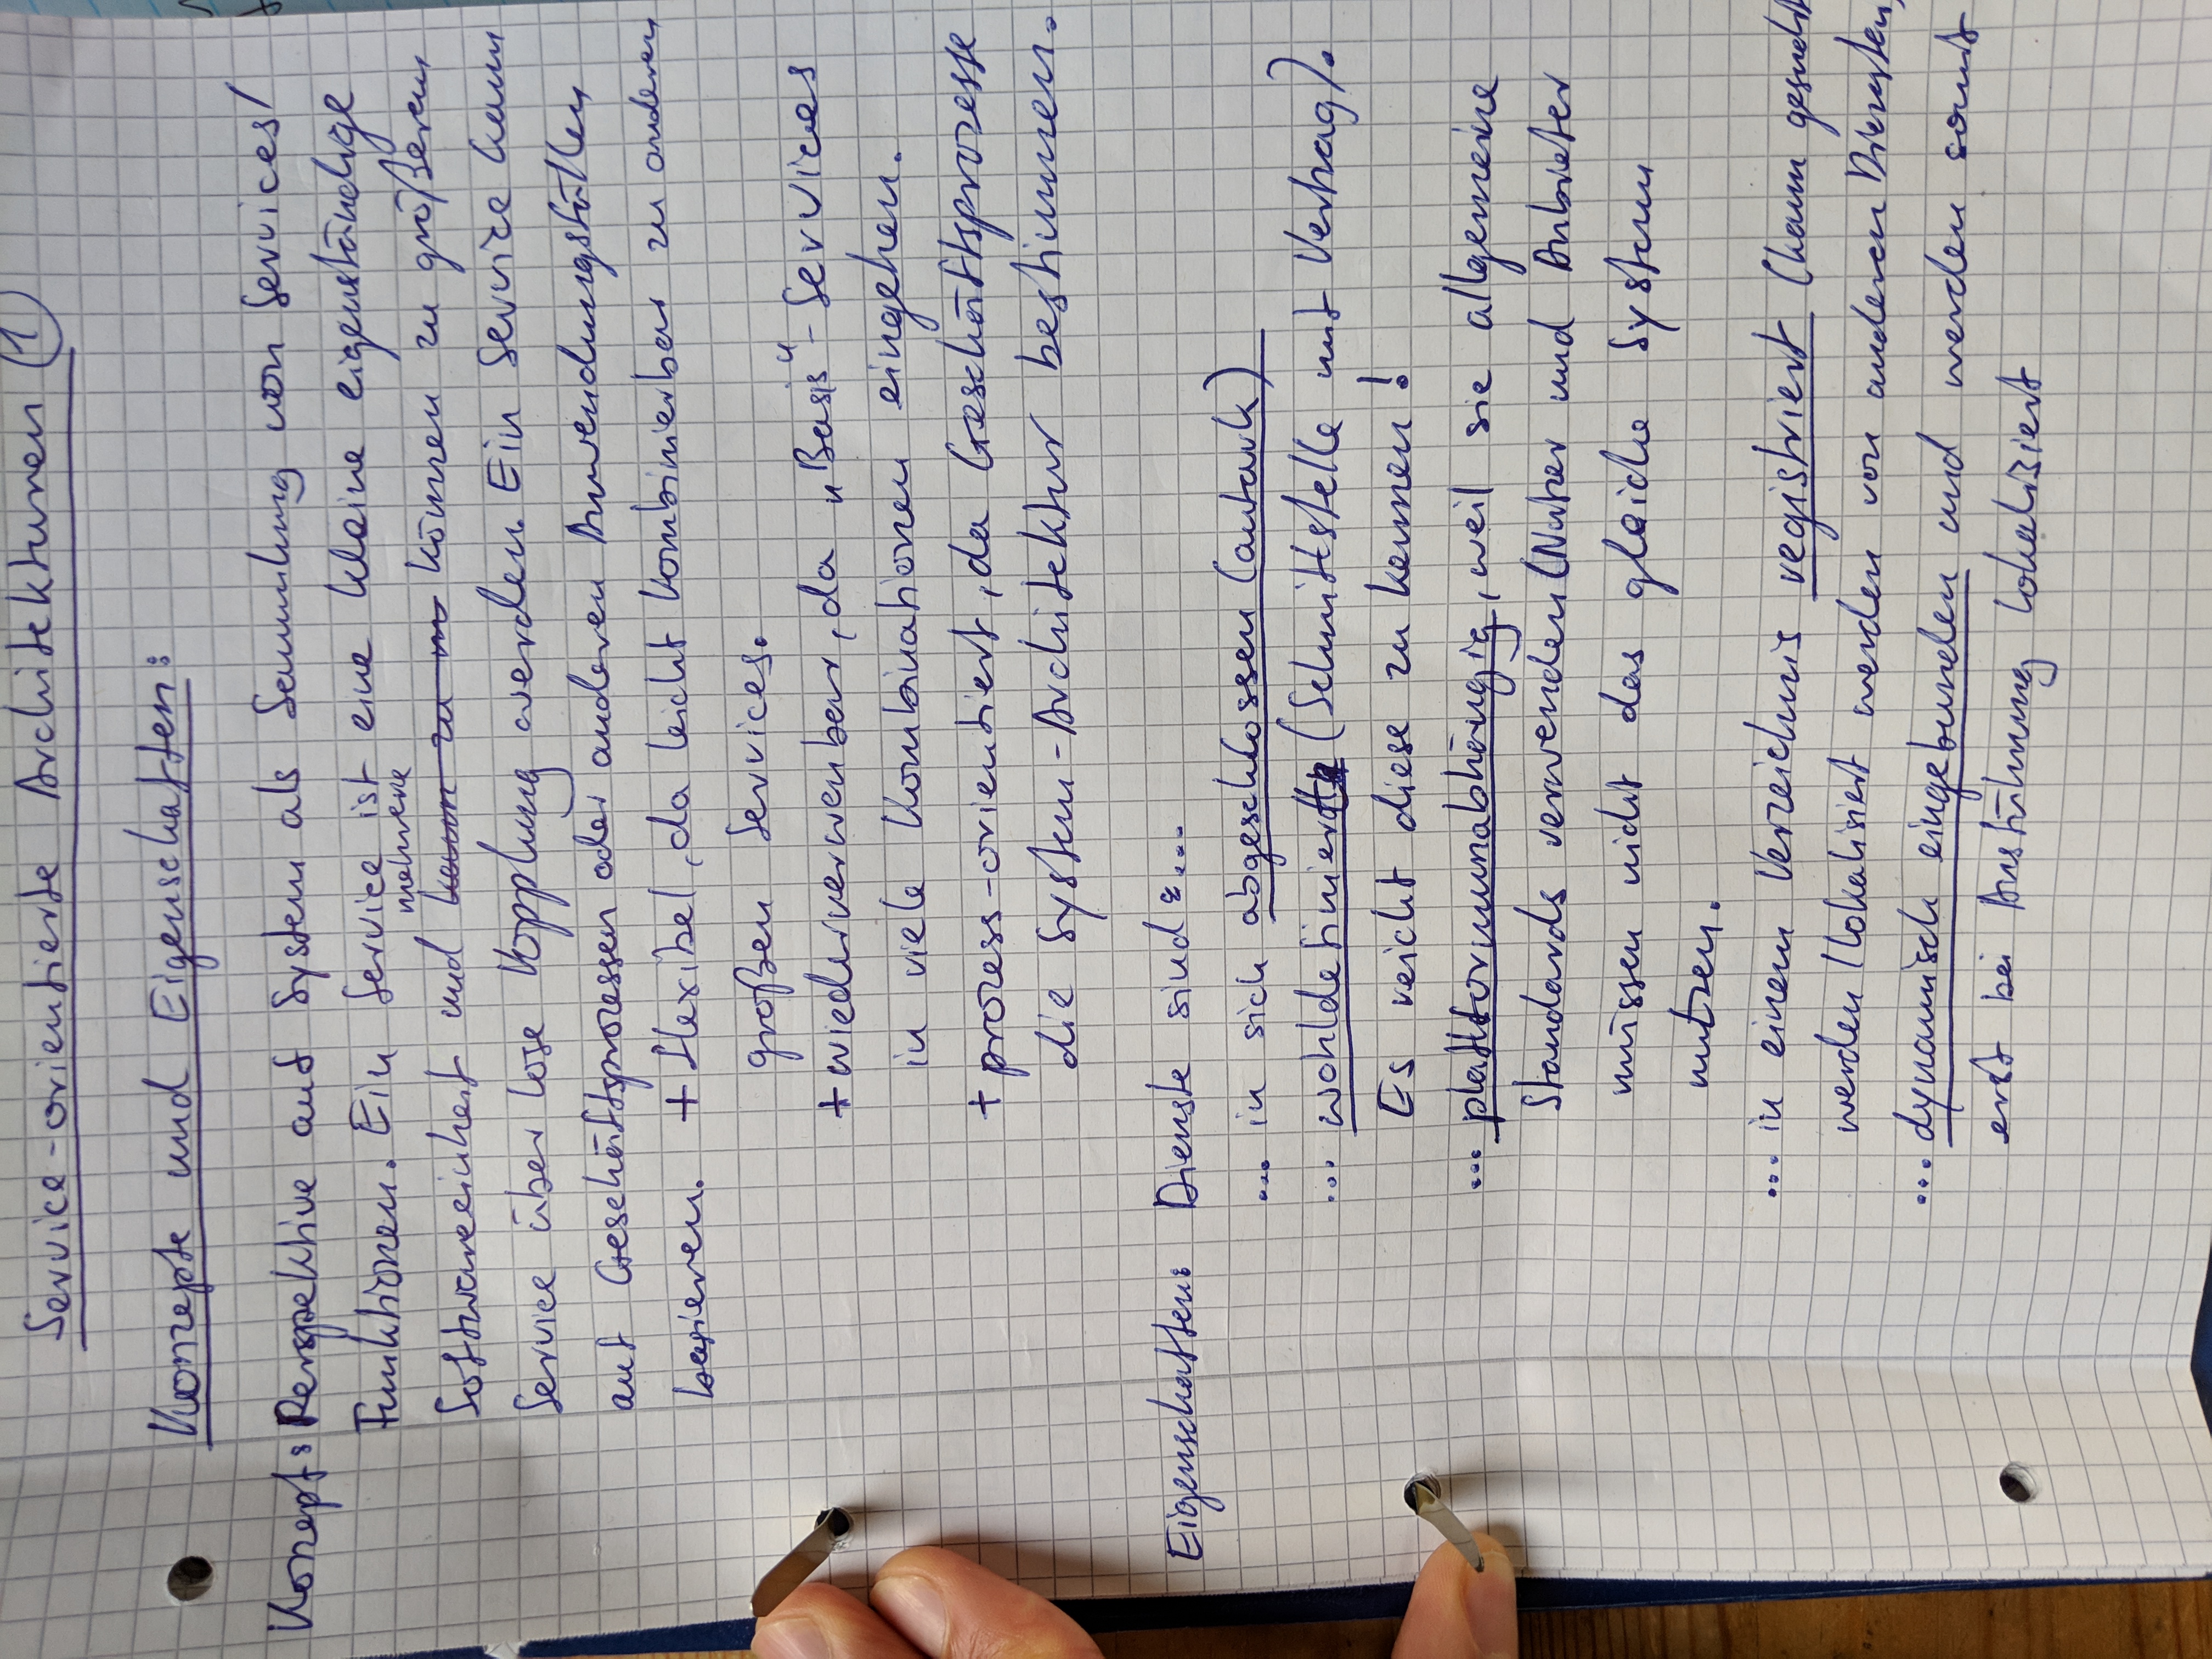 Service-orientierte Architekturen (1)
Konzepte und Eigenschaften:
Konzept: Perspektive auf System als Sammlung von Services/
Funktionen. Ein Service ist eine kleine eigenständige
mehrere
Softwareeinheit und kann zu können zu größerem
Service über lose Kopplung werden. Ein Service kann
auf Geschäftsprozessen oder anderen Anwendungsfällen
basieren. + flexibel, da leicht kombinierbar zu anderen
großen Services.
+ wiederverwenbar, da "Basis"-Services
in viele Kombinationen eingehen.
+ prozess-orientiert, da Geschäftsprozesse
die System-Architektur bestimmen.
Eigenschaften: Dienste sind ...
... in sich abgeschlossen (autark)
... wohldefiniert (Schnittstelle mit Vertrag).
Es reicht diese zu kennen!
... plattformunabhängig, weil sie allgemeine
Standards verwenden (Nutzer und Anbieter
müssen nicht das gleiche System
nutzen.
... in einem Verzeichnis registriert (kann gesucht
werden/lokalisiert werden von anderen Diensten)
... dynamisch eingebunden und werden somit
erst bei Ausführung lokalisiert